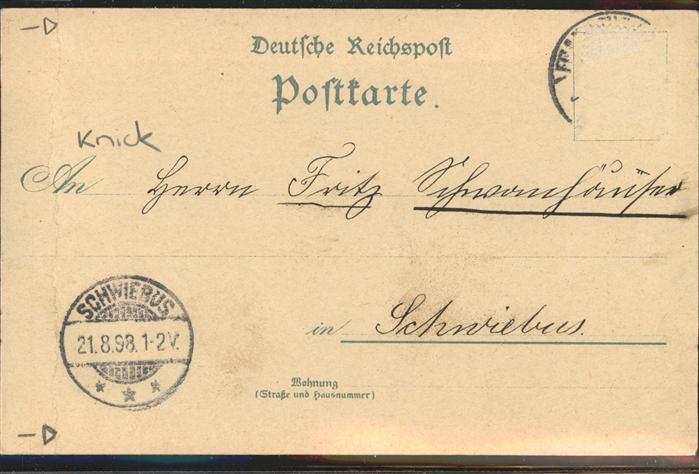 Deutsche Reichspost
Postkarte.
Knick
An Herrn Fritz Schwanhäuser
SCHWIEBUS
21.8.98.1-2V.
in Schwiebus.
Wohnung
(Straße und Hausnummer)